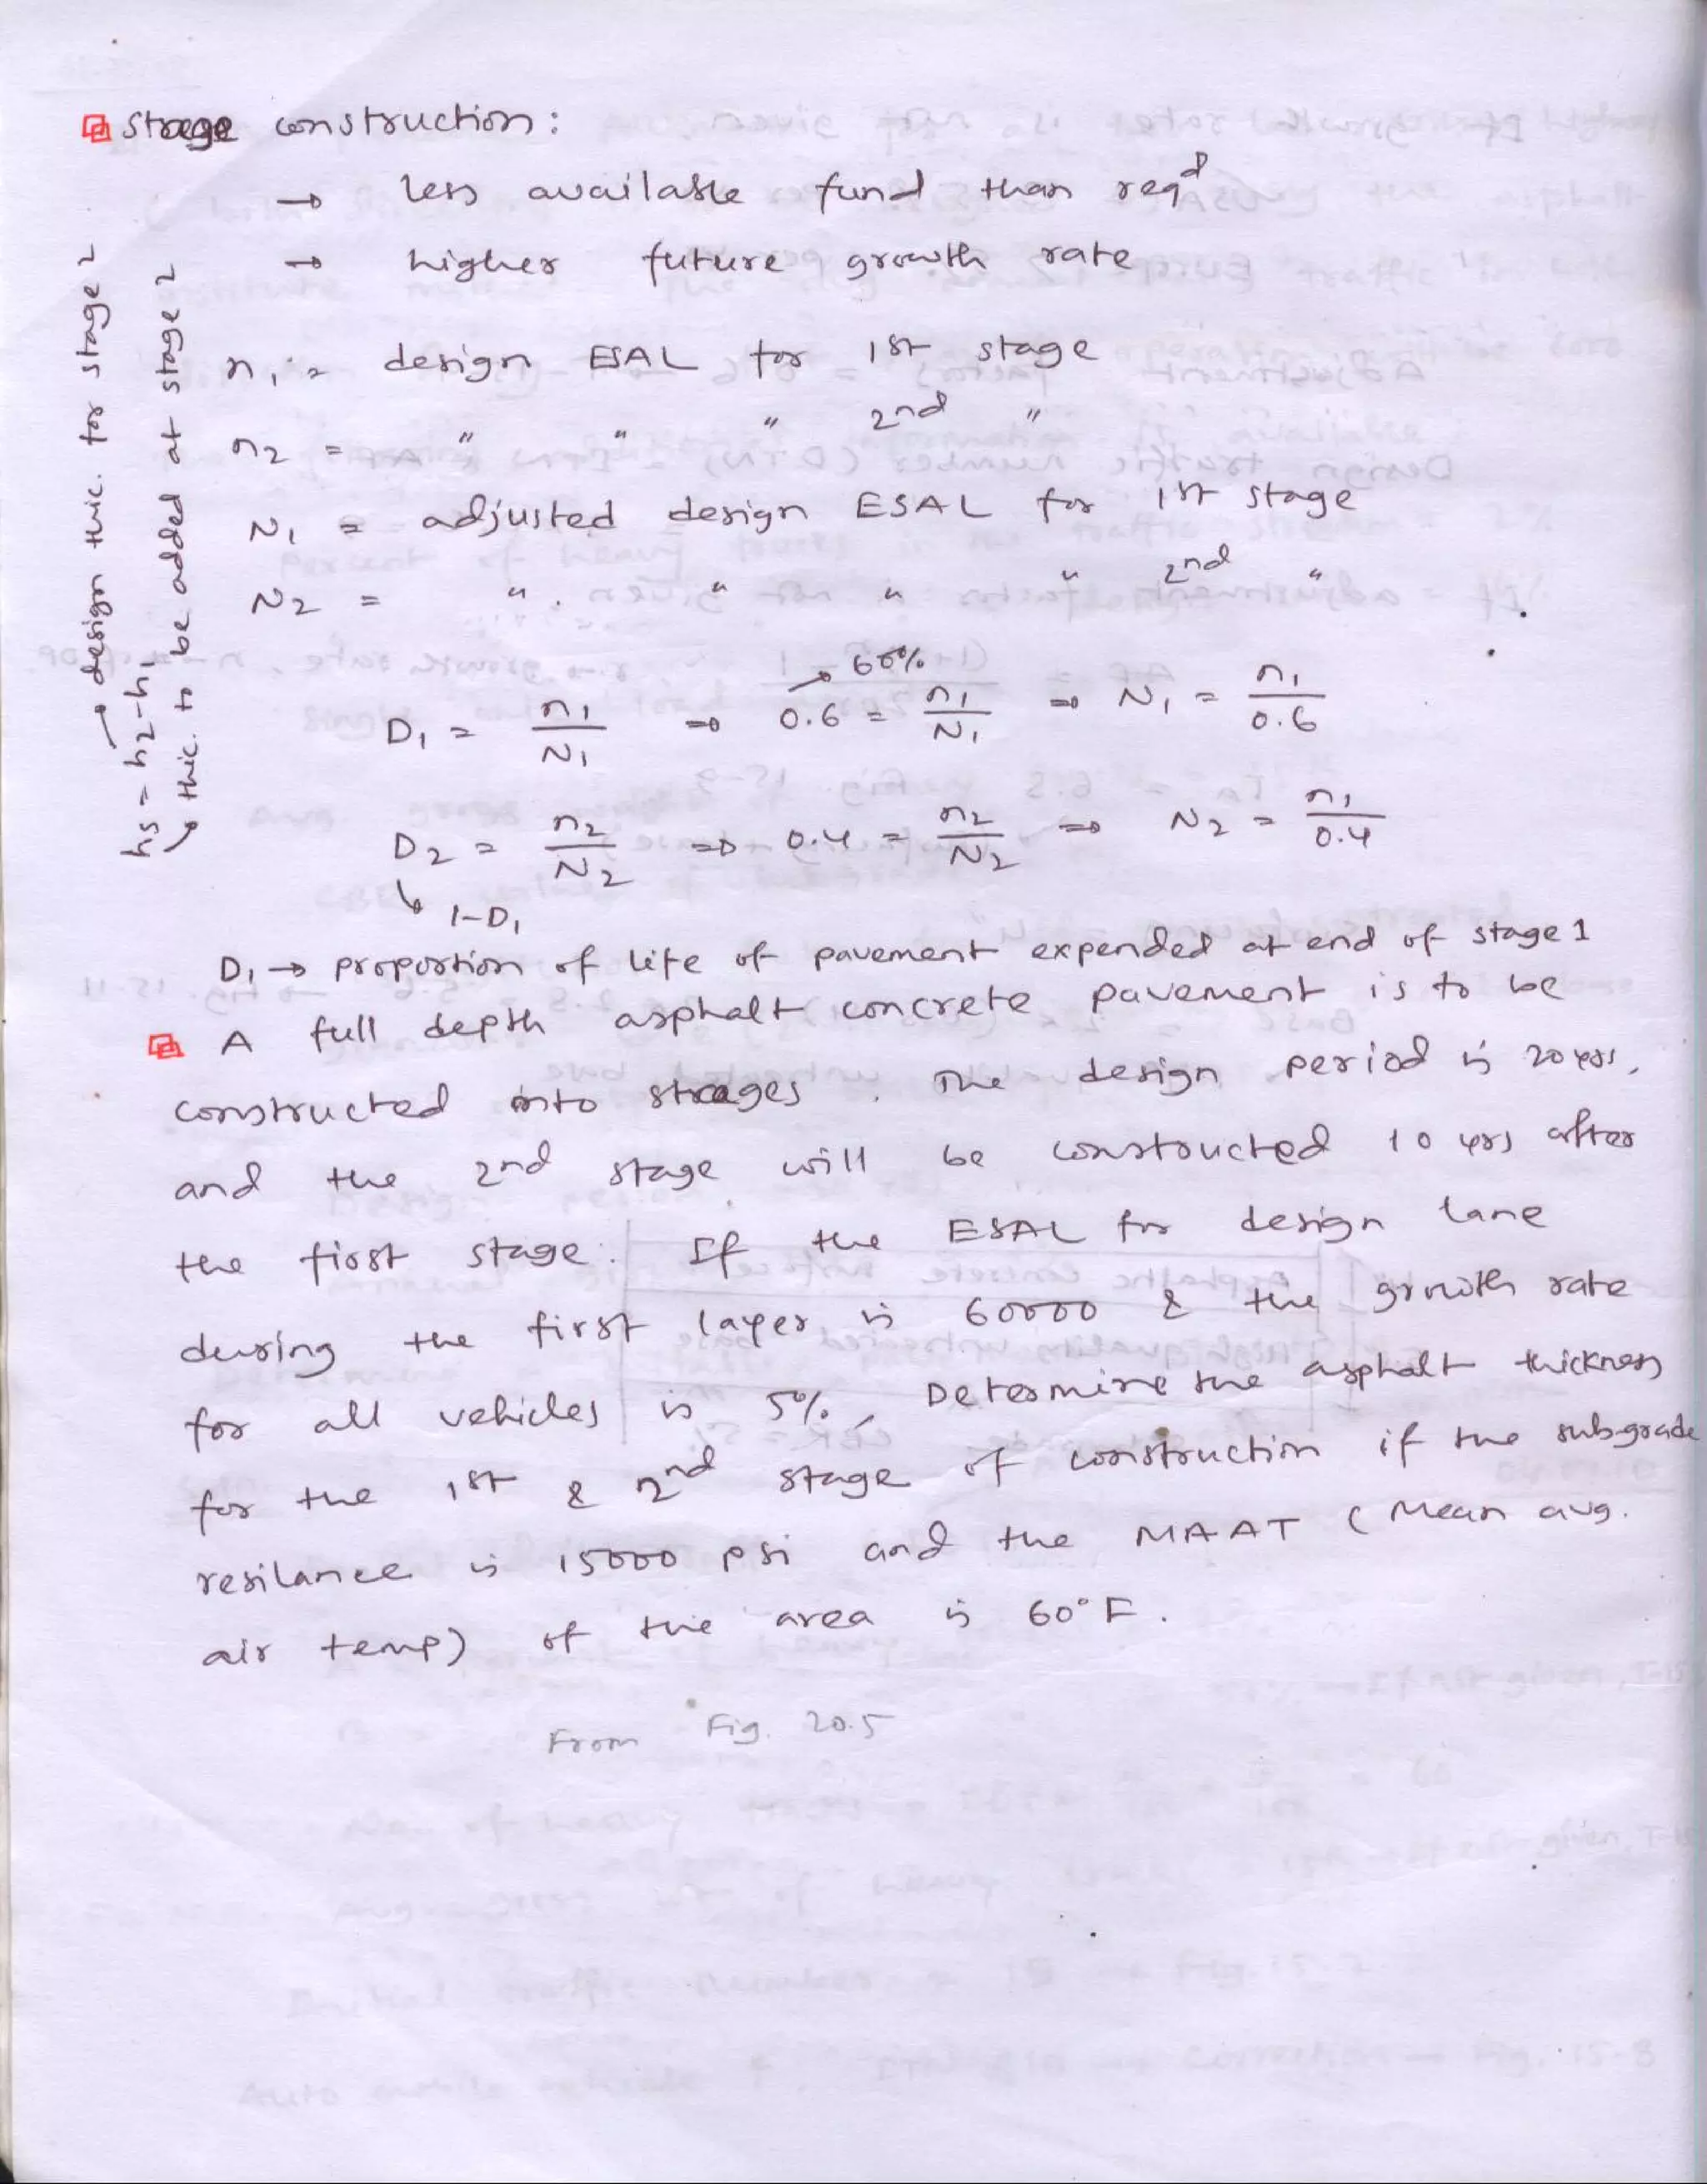 Stage construction:
→ less available fund than reqd
→ higher future growth rate
n1 = design ESAL for 1st stage
n2 = " " " 2nd "
N1 = adjusted design ESAL for 1st stage
N2 = " " " " 2nd "
→ 60%
D1 = n1/N1 ⇒ 0.6 = n1/N1 ⇒ N1 = n1/0.6
D2 = n2/N2 ⇒ 0.4 = n2/N2 ⇒ N2 = n1/0.4
↳ 1-D1
D1 → proportion of life of pavement expended at end of stage 1
hs = h2-h1
→ design thic. for stage 2
→ thic. to be added at stage 2
A full depth asphalt concrete pavement is to be
constructed into stages. The design period is 20 yrs,
and the 2nd stage will be constructed 10 yrs after
the first stage. If the ESAL for design lane
during the first layer is 60000 & the growth rate
for all vehicles is 5%, Determine the asphalt thickness
for the 1st & 2nd stage of construction if the subgrade
resilance is 15000 psi and the MAAT (Mean avg.
air temp) of the area is 60°F.
From Fig. 20.5